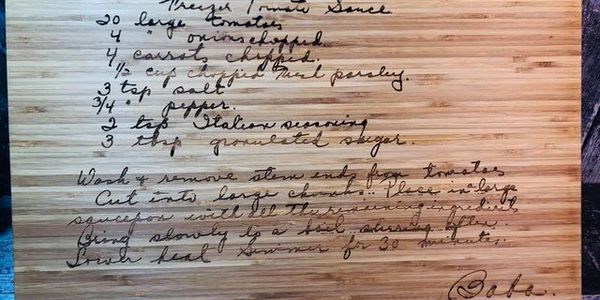 Freezer Tomato Sauce
20 large tomatoes
4 " onions chopped.
4 carrots chopped.
1/2 cup chopped fresh parsley.
3 tsp salt
3/4 " pepper.
2 tsp Italian seasoning
3 tbsp granulated sugar.
Wash & remove stem ends from tomatoes
Cut into large chunks.. Place in large
saucepan with all the remaining ingredients
Bring slowly to a boil, stirring often.
Lower heat Simmer for 30 minutes.
Baba.